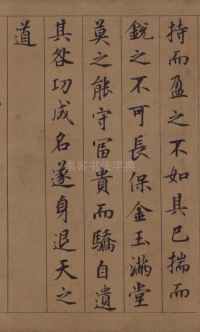 持而盈之不如其已揣而
銳之不可長保金玉滿堂
莫之能守冨貴而驕自遺
其咎功成名遂身退天之
道